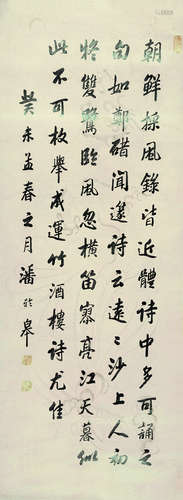 朝鮮採風錄皆近體詩中多可誦之
句如鄭碏聞邃詩云遠〻沙上人初
將雙鷺臨風忽橫笛寥亮江天暮似
此不可枚舉成運竹酒樓詩尤佳
癸未孟春之月潘齡皋